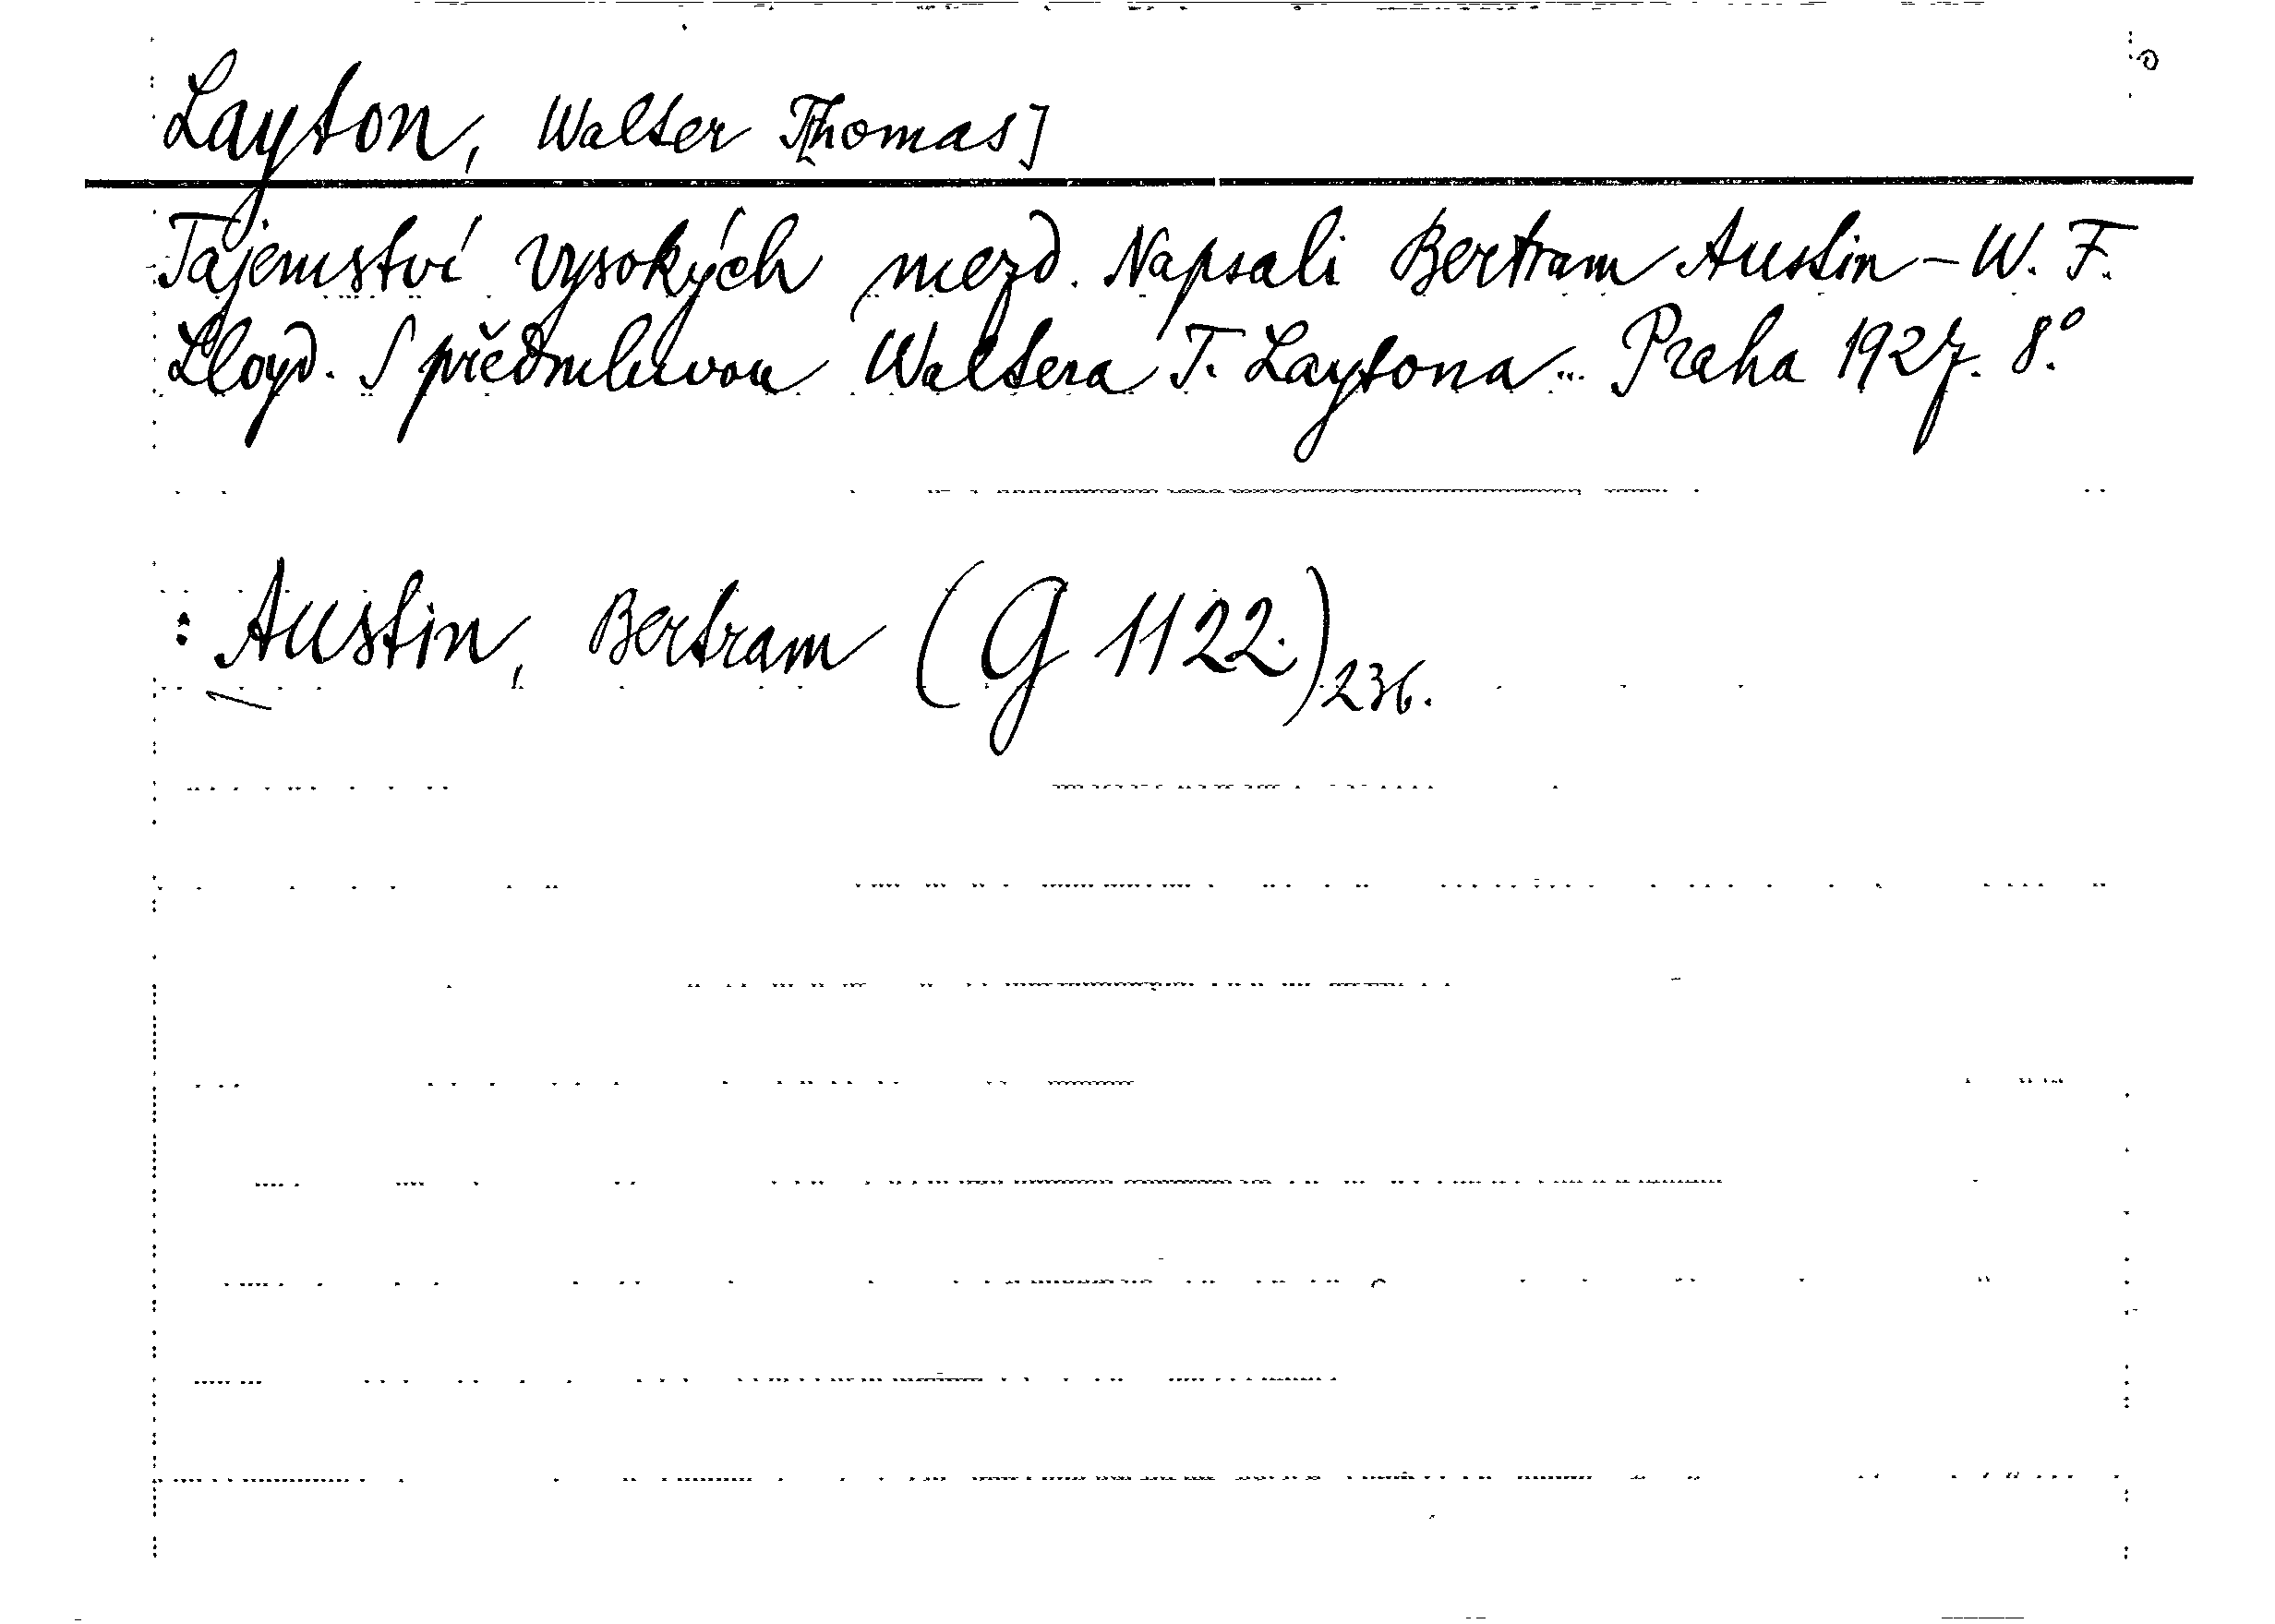 Layton, Walter T[homas]
Tajemství vysokých mezd. Napsali Bertram Austin - W. F.
Lloyd. S předmluvou Waltera T. Laytona... Praha 1927. 8.°
: Austin, Bertram (G 1122.) 236.